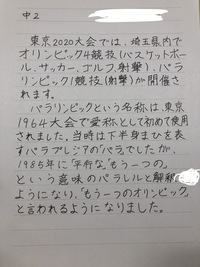 中2
東京2020大会では、埼玉県内で
オリンピック4競技(バスケットボー
ル、サッカー、ゴルフ、射撃)、パラ
リンピック1競技(射撃)が開催さ
れます。
パラリンピックという名称は、東京
1964大会で愛称として初めて使用
されました。当時は下半身まひを表
すパラプレジアの「パラ」でしたが、
1985年に「平行な」、「もう一つの」
という意味のパラレルと解釈
ようになり、「もう一つのオリンピック」
と言われるようになりました。